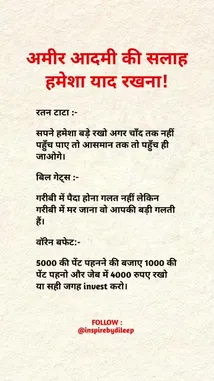 अमीर आदमी की सलाह
हमेशा याद रखना!
रतन टाटा :-
सपने हमेशा बड़े रखो अगर चाँद तक नहीं
पहुँच पाए तो आसमान तक तो पहुँच ही
जाओगे।
बिल गेट्स :-
गरीबी में पैदा होना गलत नहीं लेकिन
गरीबी में मर जाना वो आपकी बड़ी गलती
हैं।
वॉरेन बफेट:-
5000 की पेंट पहनने की बजाए 1000 की
पेंट पहनो और जेब में 4000 रुपए रखो
या सही जगह invest करो।
FOLLOW :
@inspirebydileep